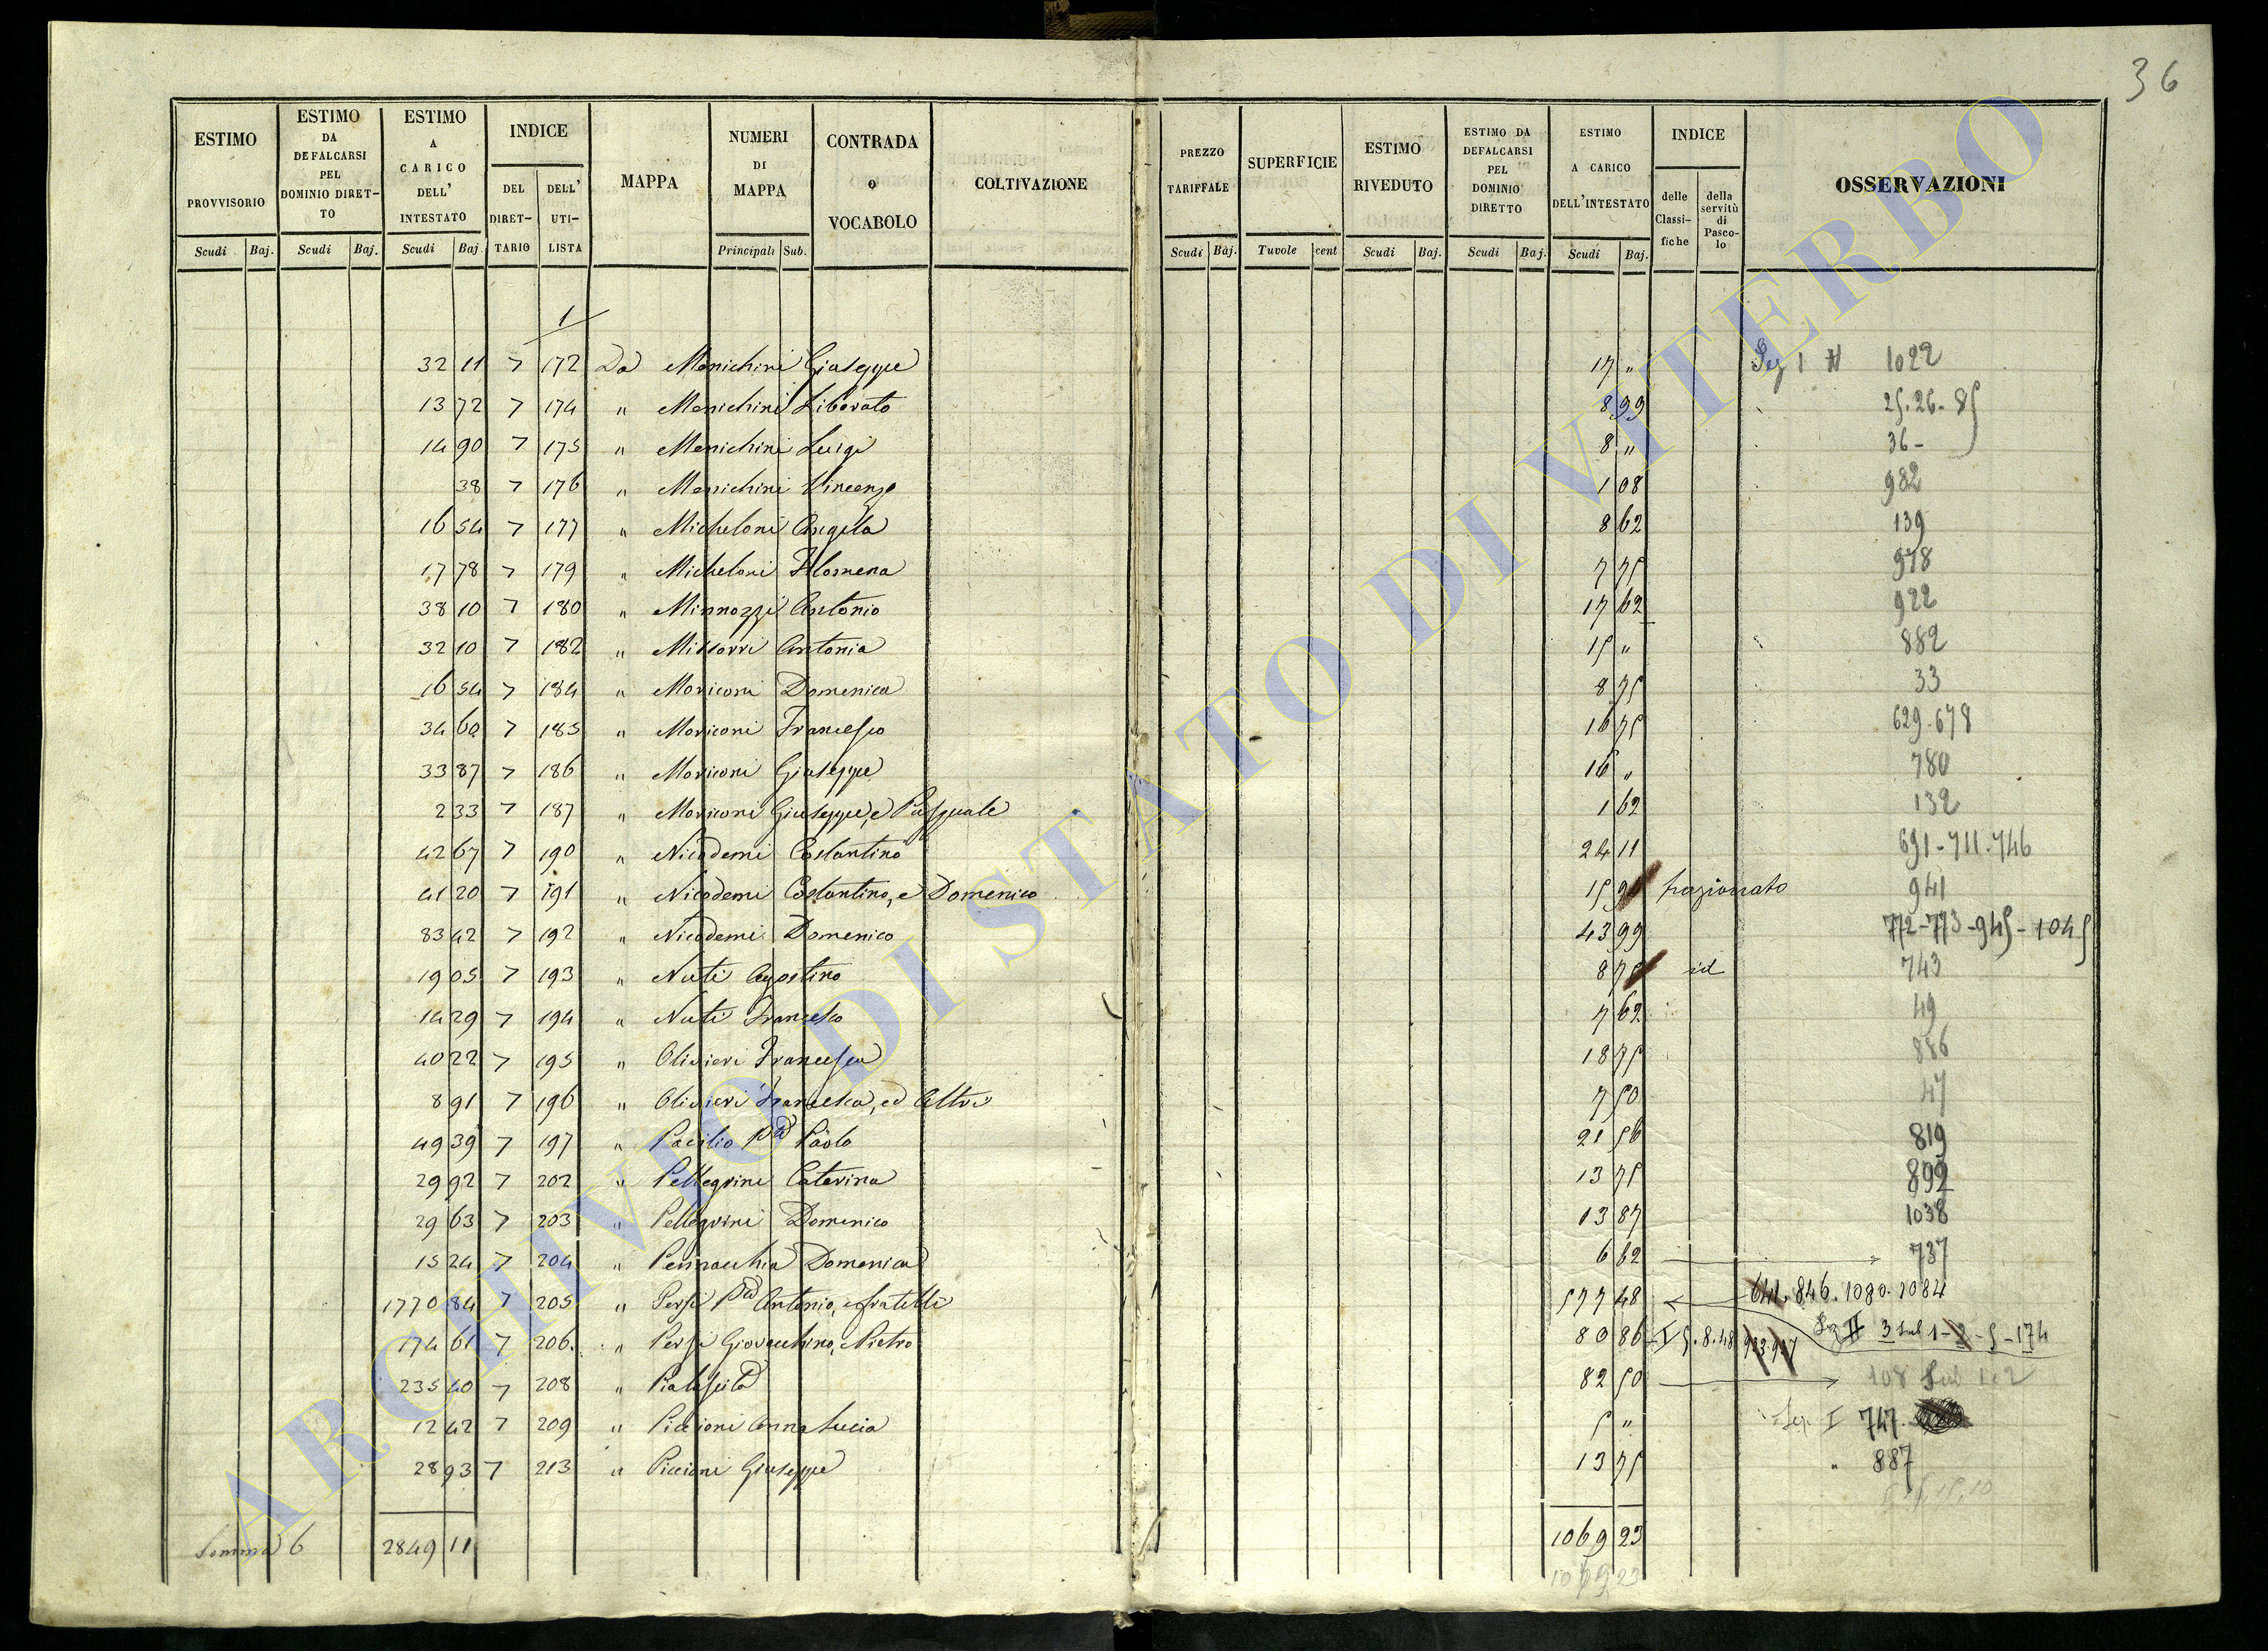 36
ESTIMO PROVVISORIO Scudi Baj.
ESTIMO DA DEFALCARSI PEL DOMINIO DIRETTO Scudi Baj.
ESTIMO A CARICO DELL' INTESTATO Scudi Baj.
INDICE DEL DIRETTARIO DELL' UTILISTA
MAPPA
NUMERI DI MAPPA Principali Sub.
CONTRADA o VOCABOLO
COLTIVAZIONE
PREZZO TARIFFALE Scudi Baj.
SUPERFICIE Tuvole cent
ESTIMO RIVEDUTO Scudi Baj.
ESTIMO DA DEFALCARSI PEL DOMINIO DIRETTO Scudi Baj.
ESTIMO A CARICO DELL'INTESTATO Scudi Baj.
INDICE delle Classifiche della servitù di Pascolo
OSSERVAZIONI
1
32 11 7 172 Da Menichini Giuseppe 17 " Sez I 1022
13 72 7 174 " Menichini Liborato 8 99 25. 26. 85
14 90 7 175 " Menichini Luigi 8 " 36-
38 7 176 " Menichini Vincenzo 1 08 982
16 54 7 177 " Micheloni Angela 8 62 139
17 78 7 179 " Micheloni Filomena 7 75 978
38 10 7 180 " Minnozzi Antonio 17 62 922
32 10 7 182 " Missorri Antonia 15 " 882
16 54 7 184 " Moriconi Domenica 8 75 33
34 60 7 185 " Moriconi Francesco 16 75 629-678
33 87 7 186 " Moriconi Giuseppe 16 " 780
2 33 7 187 " Moriconi Giuseppe, e Pasquale 1 62 132
42 67 7 190 " Nicodemi Costantino 24 11 691-711-746
41 20 7 191 " Nicodemi Costantino, e Domenico 15 frazionato 941
83 42 7 192 " Nicodemi Domenico 43 99 772-773-945-1045
19 05 7 193 " Nuti Agostino 8 75 id 743
14 29 7 194 " Nuti Francesco 7 62 49
40 22 7 195 " Olivieri Francesca 18 75 886
8 91 7 196 " Olivieri Francesca, ed Altri 7 50 47
49 39 7 197 " Pacilio Paolo 21 56 819
29 92 7 202 " Pellegrini Caterina 13 75 892
29 63 7 203 " Pellegrini Domenico 13 87 1038
15 24 7 204 " Pennacchia Domenica 6 62 737
1770 84 7 205 " Persi Antonio, e fratelli 577 48 641. 846. 1080. 1084
174 61 7 206. " Persi Giovacchino, e Pietro 80 86 I 5. 8. 48 933-937 Sez II 3 sub 1-2-5-174
235 40 7 208 " 82 50 108 Sub 1 e 2
12 42 7 209 " Piccioni Anna Lucia 5 " Sez I 747.
28 93 7 213 " Piccioni Giuseppe 13 75 " 887
Somma 6 2849 11 1069 23
1069 23
ARCHIVIO DI STATO DI VITERBO